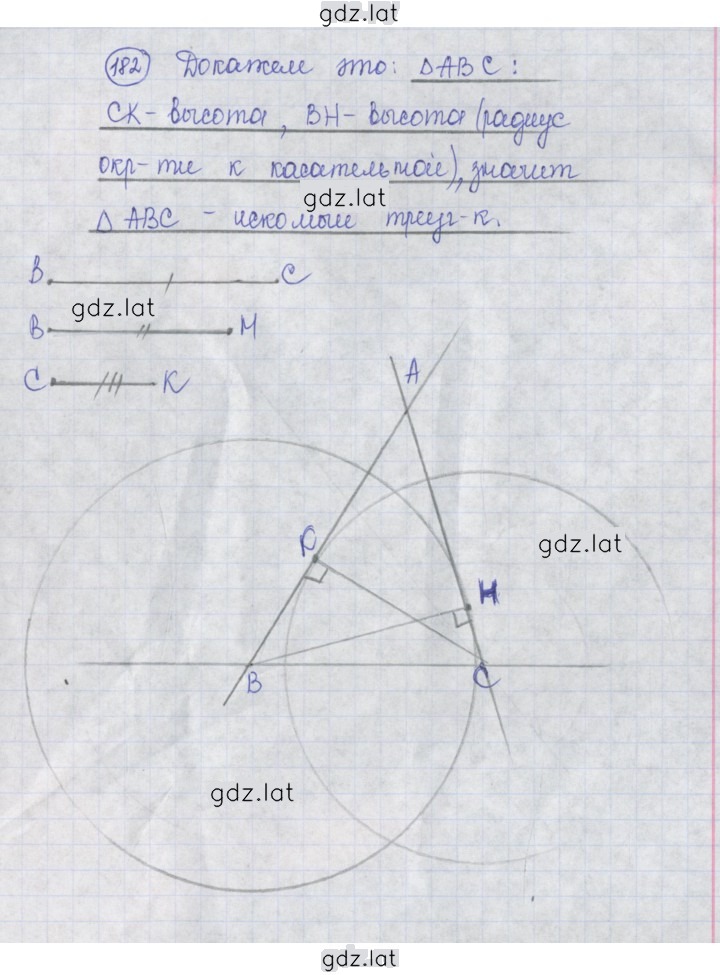 gdz.lat
182 Докажем это: △ABC:
CK- высота, BH- высота (радиус
окр-ти к касательной), значит
gdz.lat
△ ABC - искомый треуг-к.
B C
gdz.lat
B H
C K
A
K
gdz.lat
H
B
C
gdz.lat
gdz.lat